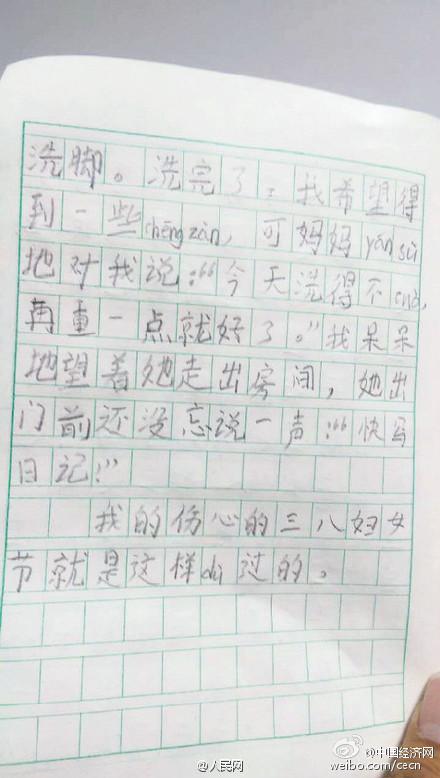 洗脚。洗完了，我希望得
到一些chēngzàn，可妈妈yánsù
地对我说：“今天洗得不cuò，
再重一点就好了。”我呆呆
地望着她走出房间，她出
门前还没忘说一声：“快写
日记！”
我的伤心的三八妇女
节就是这样dù过的。
@人民网
@中国经济网
weibo.com/cecn